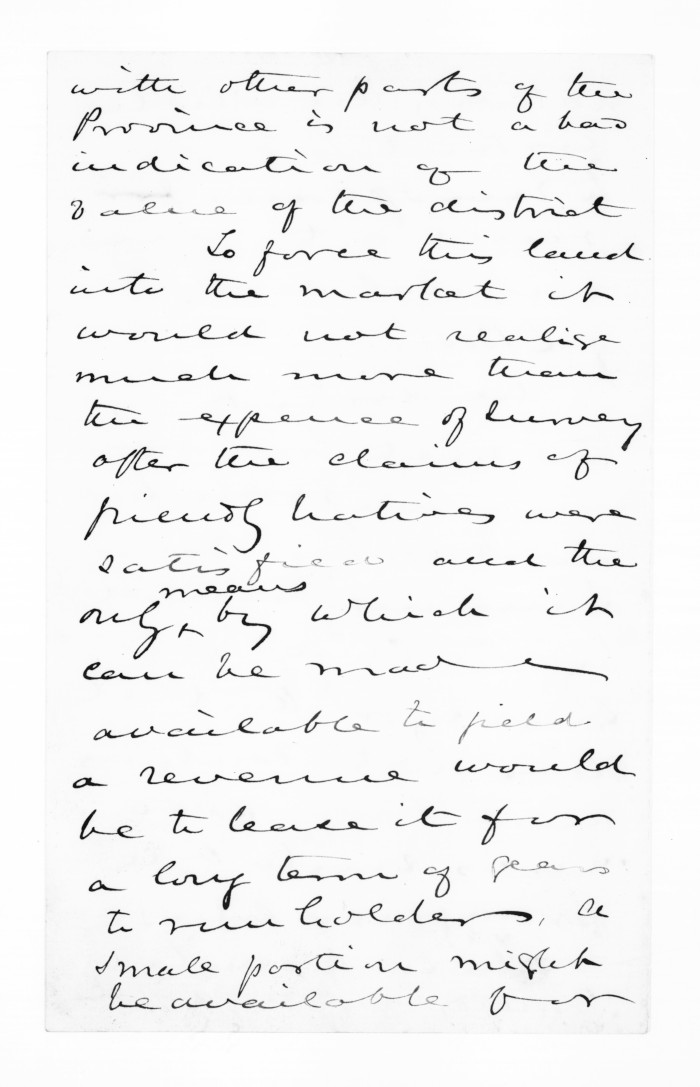 with other parts of the
Province is not a bad
indication of the
value of the district
To force this land
into the market it
would not realize
much more than
the expence of survey
after the claims of
friendly natives were
satisfied and the
means
only by which it
can be made
available to yield
a revenue would
be to lease it for
a long term of years
to runholders, a
small portion might
be available for